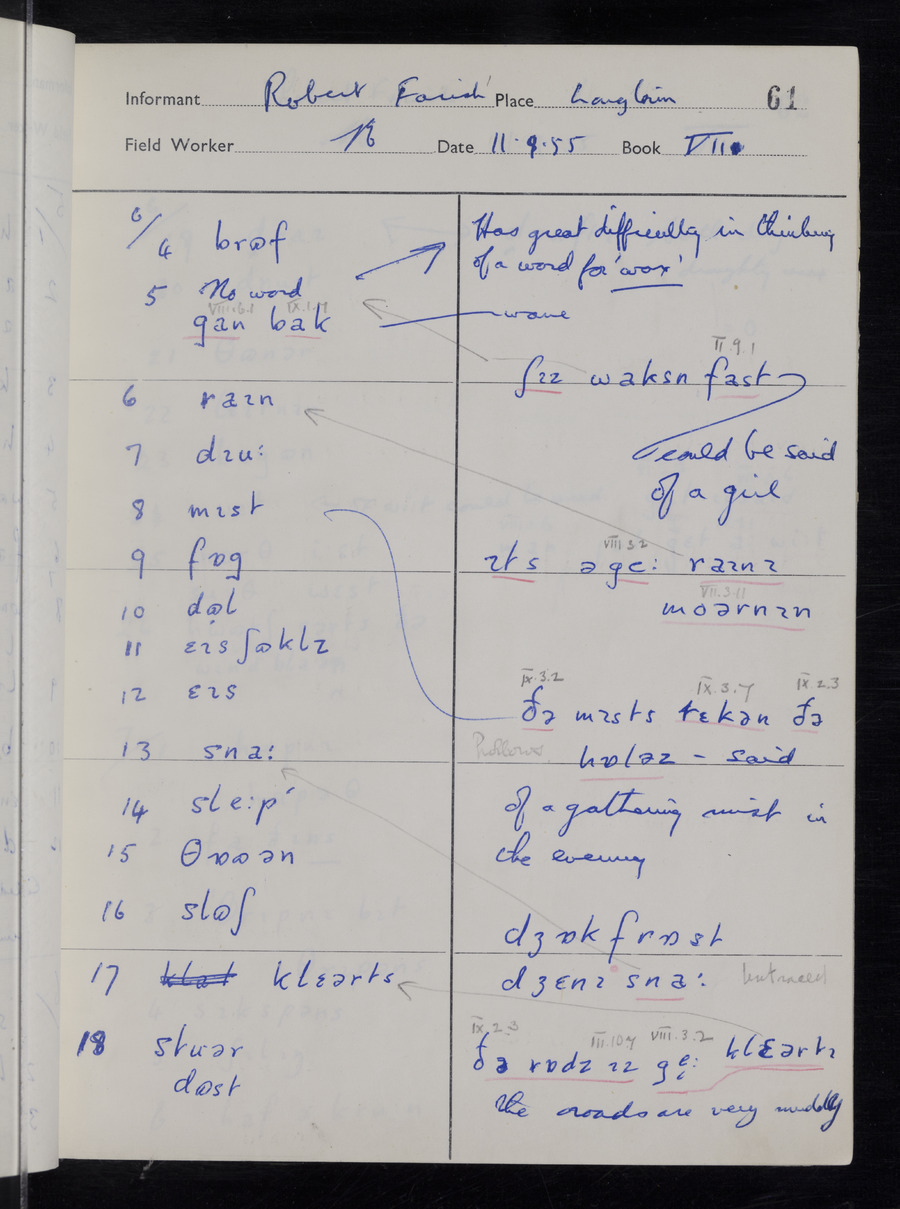 Informant Robert Farish Place Longtown 61
Field Worker Date 11.9.55 Book VII
6/4 brɷf
5 No word
VIII.6.1 IX.1.7
gan bak
6 raɪn
7 dɪu:
8 mɪst
9 fɒg
10 dɷl
11 ɛɪsʃɷklɪ
12 ɛɪs
13 sna:
14 sle:p
15 θɒɷən
16 slɷʃ
17 klɛərts
18 stuər
dɷst
Has great difficulty in thinking
of a word for 'wax'
wane
II.9.1
ʃɪɪ waksn fast
could be said
of a girl
VIII 3 2
ɪts əge: raɪnɪ
VII.3.11
moərnɪn
IX.3.2 IX.3.7 IX 2.3
ðə mɪsts tɛkən ðə
hollows hɒləz - said
of a gathering mist in
the evening
dʒɒk frɒst
dʒɛnɪ sna:
IX.2.3 III.10.7 VIII.3.2
ðə rɒdz ɪz ge: klɛərtɪ
the roads are very muddy